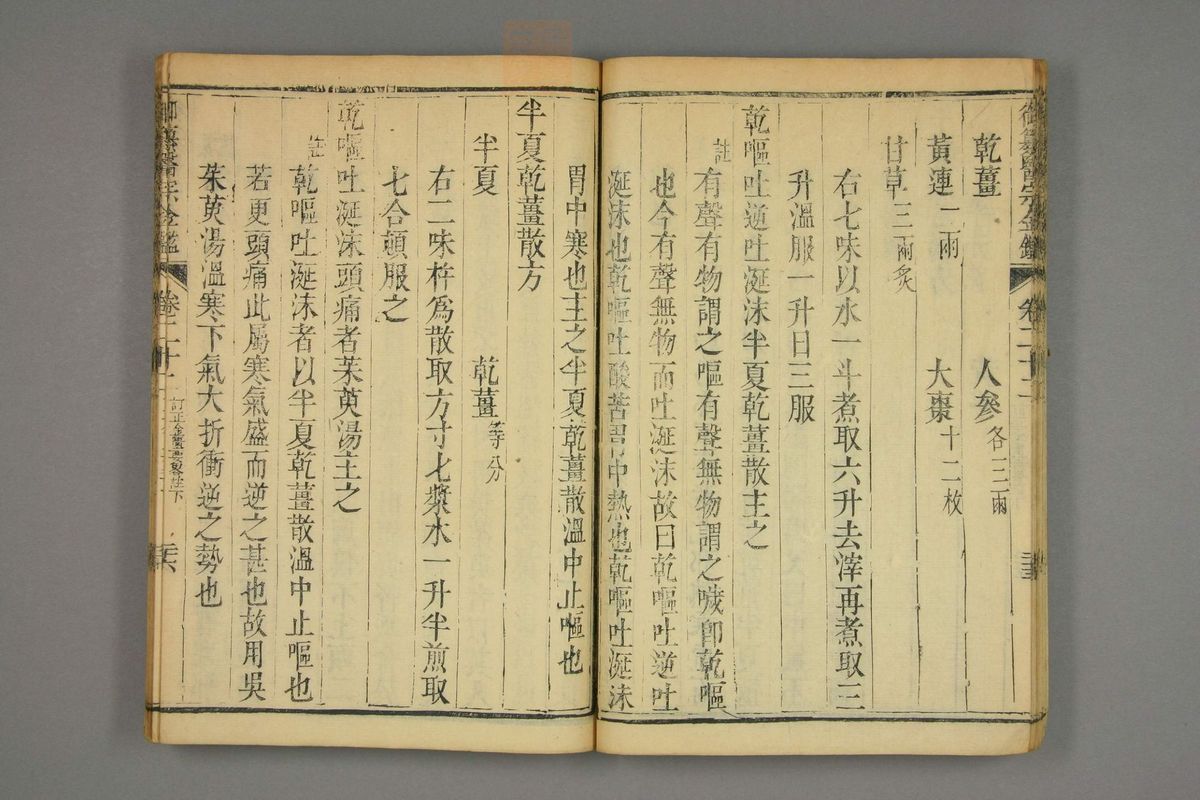 御纂醫宗金鑑 卷二十二
乾薑 人參各三兩
黃連一兩 大棗十二枚
甘草三兩炙
右七味以水一斗煮取六升去滓再煮取三
升溫服一升日三服
乾嘔吐逆吐涎沫半夏乾薑散主之
註有聲有物謂之嘔有聲無物謂之噦卽乾嘔
也今有聲無物而吐涎沫故曰乾嘔吐逆吐
涎沫也乾嘔吐酸苦胃中熱也乾嘔吐涎沫
胃中寒也主之半夏乾薑散溫中止嘔也
半夏乾薑散方
半夏 乾薑等分
右二味杵爲散取方寸匕漿水一升半煎取
七合頓服之
乾嘔吐涎沫頭痛者茱萸湯主之
註乾嘔吐涎沫者以半夏乾薑散溫中止嘔也
若更頭痛此屬寒氣盛而逆之甚也故用吳
茱萸湯溫寒下氣大折衝逆之勢也
御纂醫宗金鑑 卷二十二 訂正金匱要畧註下 二六